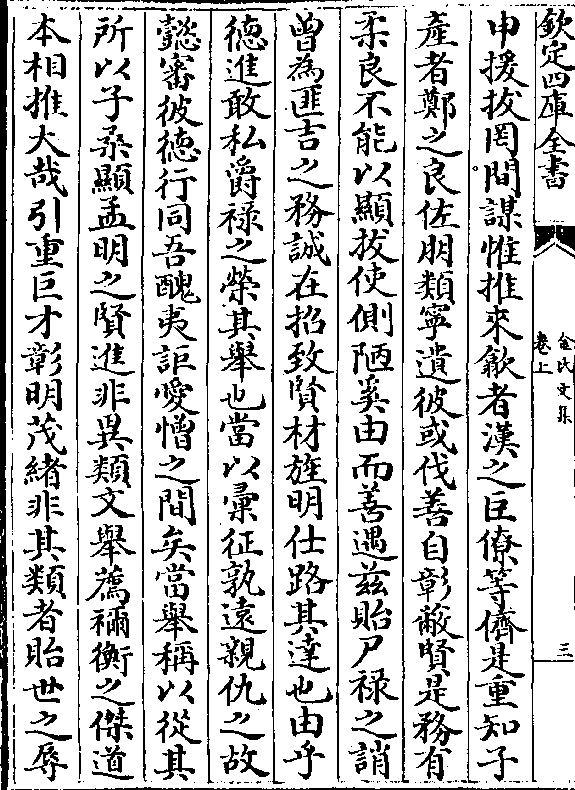 欽定四庫全書
金氏文集
卷上
三
申援拔罔間謀惟推來歙者漢之巨僚等儕是重知子
產者鄭之良佐朋類寧遺彼或伐善自彰蔽賢是務有
柔良不能以顯拔使側陋奚由而善遇茲貽尸禄之誚
曾為匪吉之務誠在招致賢材旌明仕路其達也由乎
徳進敢私爵禄之榮其舉也當以彚征孰逺親仇之故
懿審彼徳行同吾醜夷詎愛憎之間矣當舉稱以從其
所以子桑顯孟明之賢進非異類文舉薦禰衡之傑道
本相推大哉引重巨才彰明茂緒非其類者貽世之辱